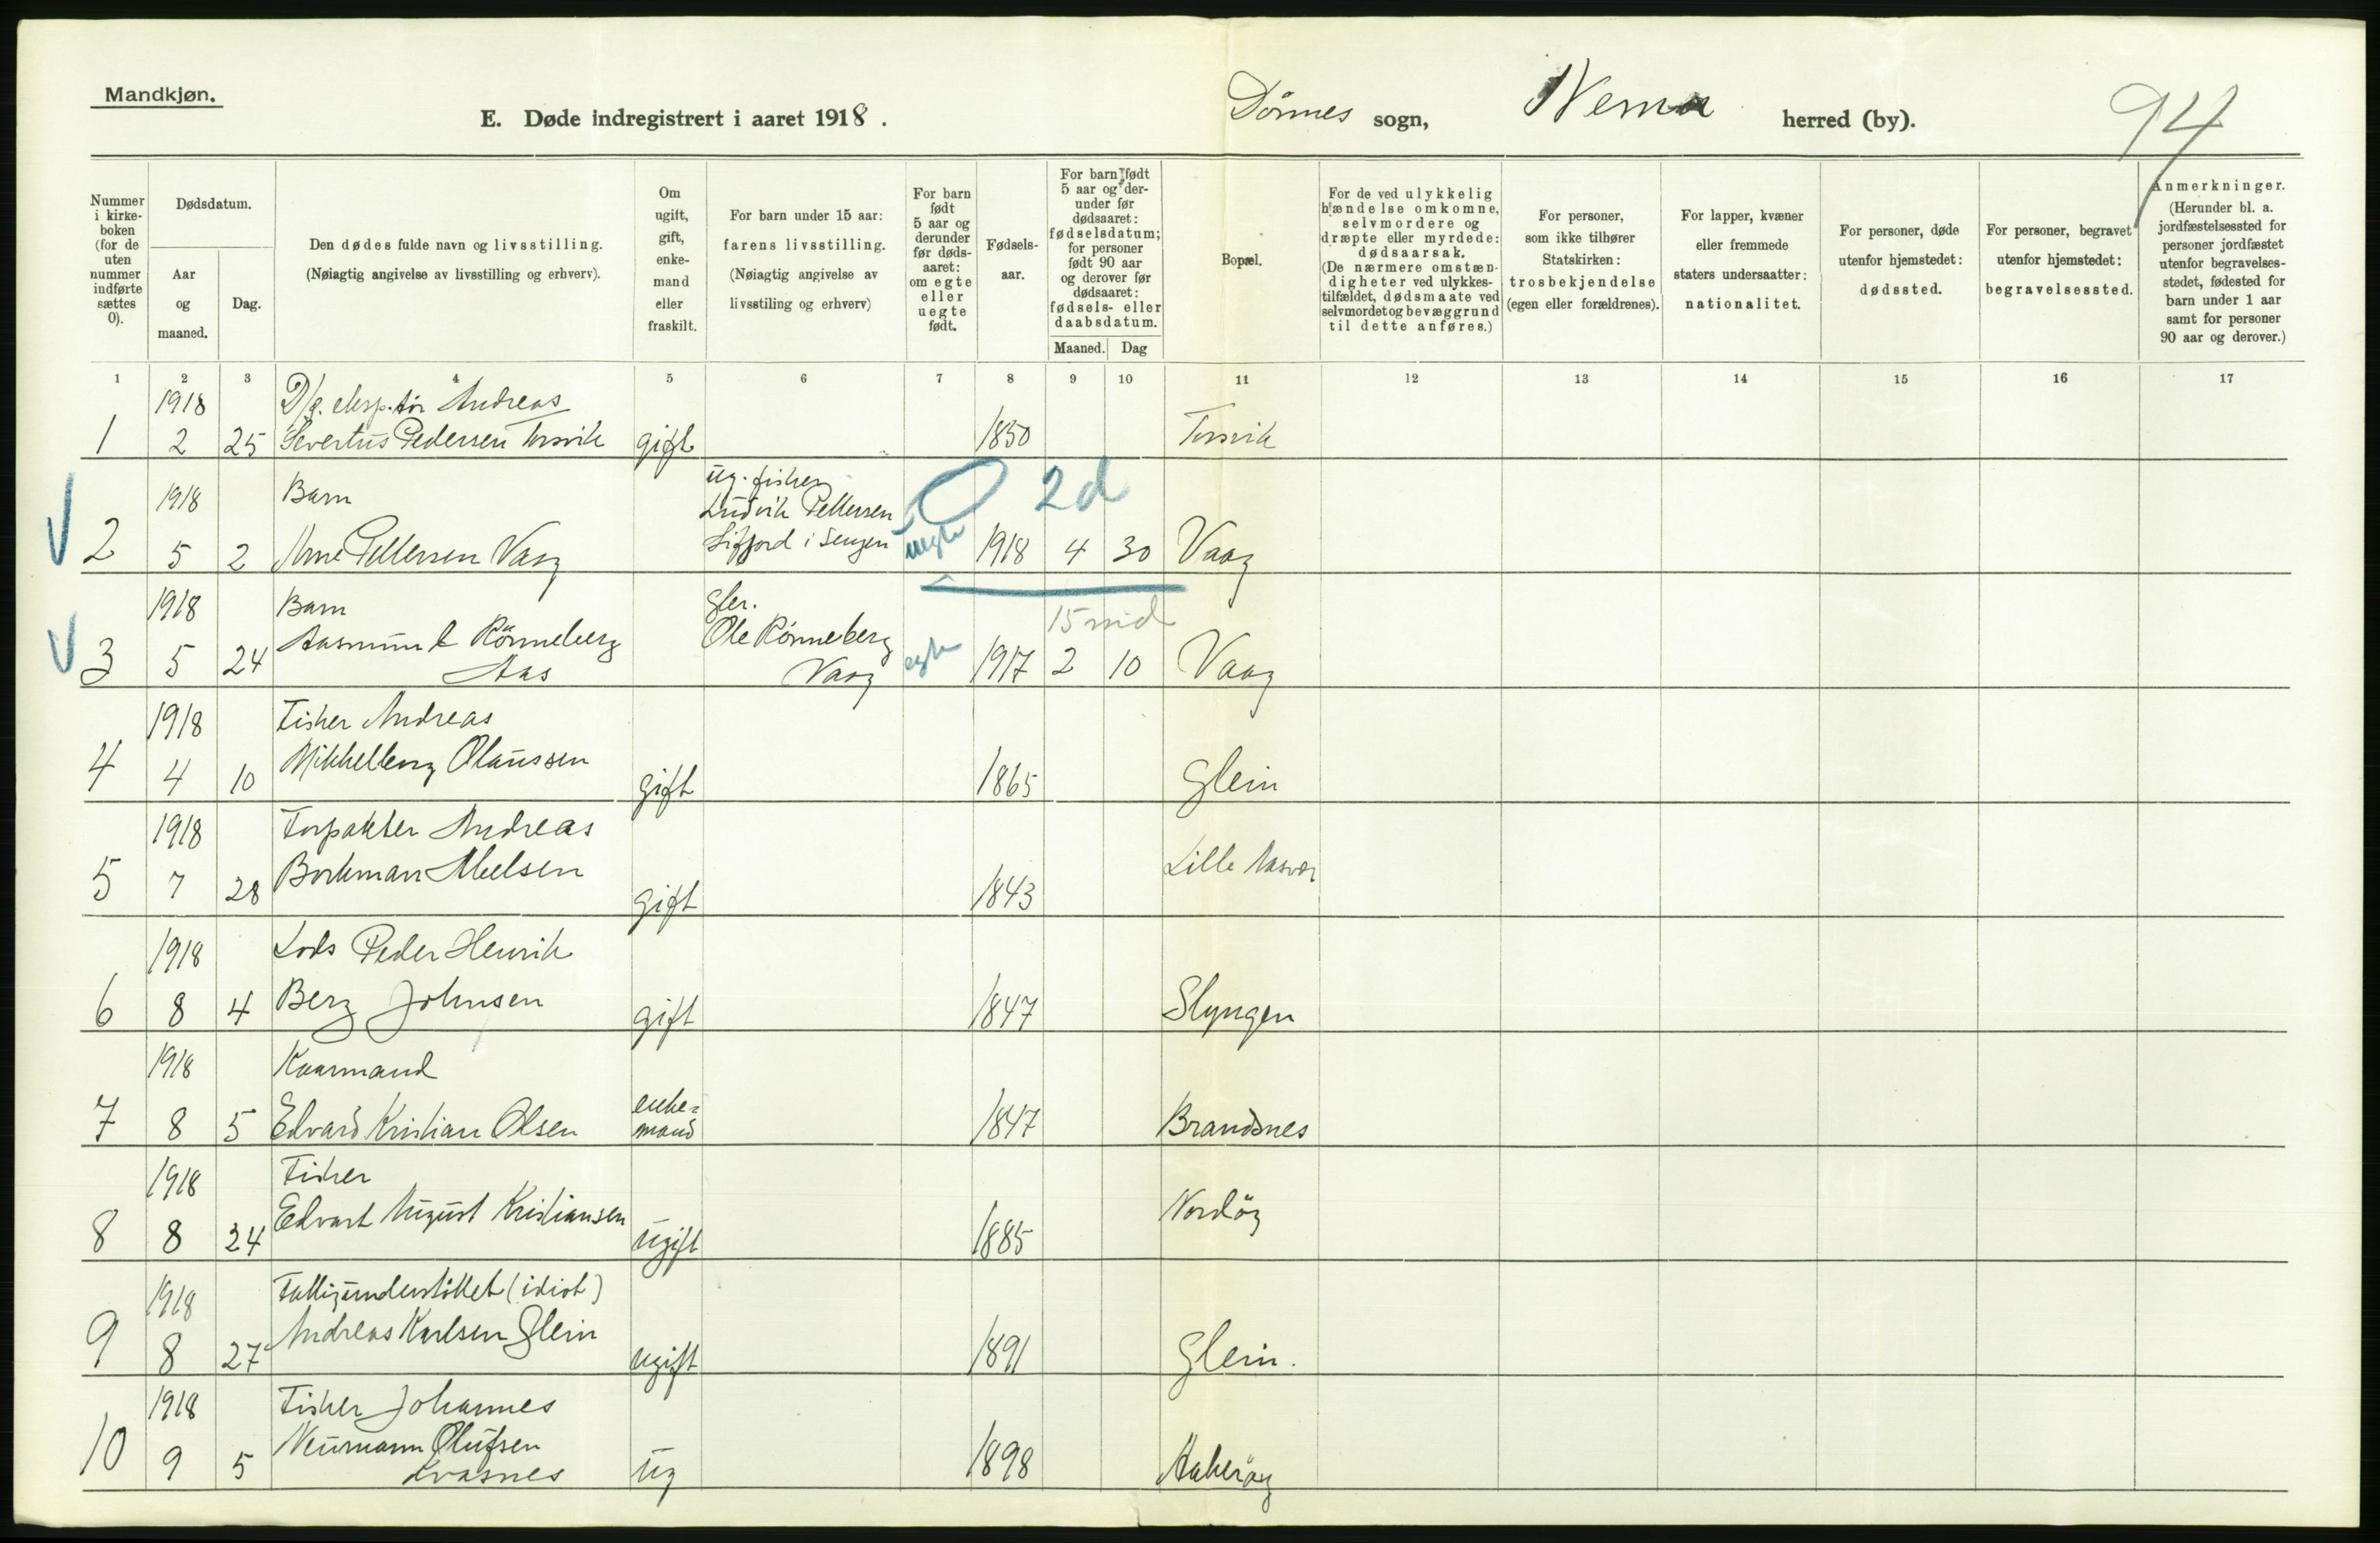 Mandkjøn.
E. Døde indregistrert i aaret 1918.
Dönnes sogn, Nesna herred (by).
94
Nummer i kirkeboken (for de uten nummer indførte sættes 0).
Dødsdatum.
Aar og maaned.
Dag.
Den dødes fulde navn og livsstilling.
(Nøiagtig angivelse av livsstilling og erhverv).
Om ugift, gift, enkemand eller fraskilt.
For barn under 15 aar: farens livsstilling.
(Nøiagtig angivelse av livsstiling og erhverv)
For barn født 5 aar og derunder før dødsaaret: om egte eller uegte født.
Fødselsaar.
For barn født 5 aar og derunder før dødsaaret: fødselsdatum; for personer født 90 aar og derover før dødsaaret: fødsels- eller daabsdatum.
Maaned. Dag
Bopæl.
For de ved ulykkelig hændelse omkomne, selvmordere og dræpte eller myrdede: dødsaarsak.
(De nærmere omstændigheter ved ulykkestilfældet, dødsmaate ved selvmordet og bevæggrund til dette anføres.)
For personer, som ikke tilhører Statskirken: trosbekjendelse (egen eller forældrenes).
For lapper, kvæner eller fremmede staters undersaatter: nationalitet.
For personer, døde utenfor hjemstedet: dødssted.
For personer, begravet utenfor hjemstedet: begravelsessted.
Anmerkninger.
(Herunder bl. a. jordfæstelsessted for personer jordfæstet utenfor begravelsesstedet, fødested for barn under 1 aar samt for personer 90 aar og derover.)
1 2 3 4 5 6 7 8 9 10 11 12 13 14 15 16 17
1918 D/s. eksp.tør Andreas
1 2 25 Severtus Pedersen Torsvik gift 1850 Torsvik
1918 Barn ug. fisker 2d
Ludvik Pettersen
2 5 2 Arne Pettersen Vaag Sifjord i Senjen uegte 1918 4 30 Vaag
1918 Barn gbr. 15 md
Aasmund Rönneberg Ole Rønneberg
3 5 24 Aas Vaag egte 1917 2 10 Vaag
1918 Fisker Andreas
Mikkelberg Olaussen
4 4 10 gift 1865 Glein
1918 Forpakter Andreas
5 7 28 Borkman Nielsen gift 1843 Lille Aasvær
1918 Lods Peder Henrik
6 8 4 Berg Johnsen gift 1847 Slyngen
1918 Kaarmand
7 8 5 Edvard Kristian Olsen enke=mand 1847 Brandsnes
1918 Fisker
Edvart August Kristiansen Nordöy
8 8 24 ugift 1885
1918 Fattigunderstöttet (idiot)
Andreas Karlsen Glein
9 8 27 ugift 1891 Glein.
1918 Fisker Johannes
Neumann Olufsen
10 9 5 Kvasnes ug 1898 Aakeröy